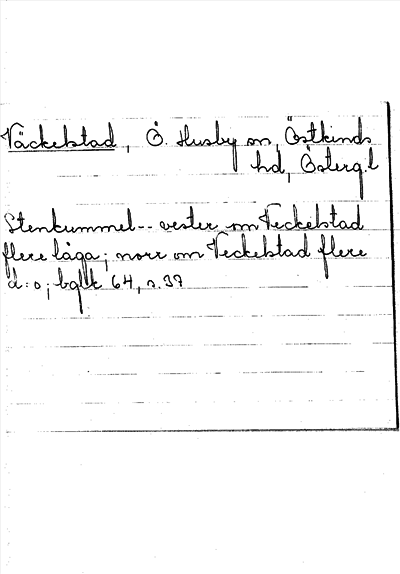 Väckelstad, Ö. Husby sn, Östkinds
hd, Österg.l
Stenkummel -- vester om Veckelstad
flere låga; norr om Veckelstad flere
d:o; bglk 64, s. 37